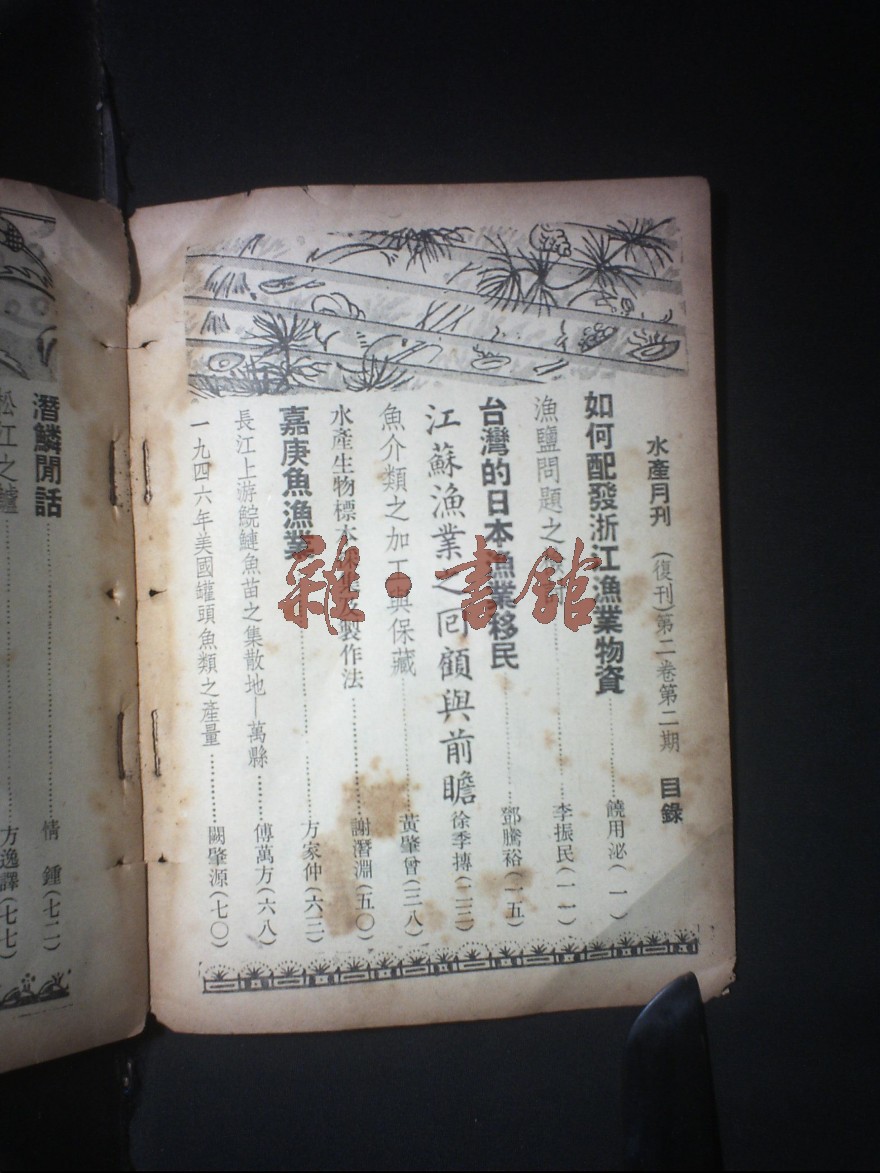 水產月刊 (復刊)第二卷第二期 目錄
如何配發浙江漁業物資……饒用泌(一)
漁鹽問題之……李振民(一一)
台灣的日本漁業移民……鄧騰裕(一五)
江蘇漁業之囘顧與前瞻 徐季搏(二三)
魚介類之加工與保藏……黃肇曾(三八)
水產生物標本採集及製作法……謝潛淵(五〇)
嘉庚魚漁業……方家仲(六三)
長江上游鯇鰱魚苗之集散地—萬縣……傅萬方(六八)
一九四六年美國罐頭魚類之產量……闕肇源(七〇)
潛鱗閒話……情鍾(七二)
松江之鱸……方逸譯(七七)
雜·書館